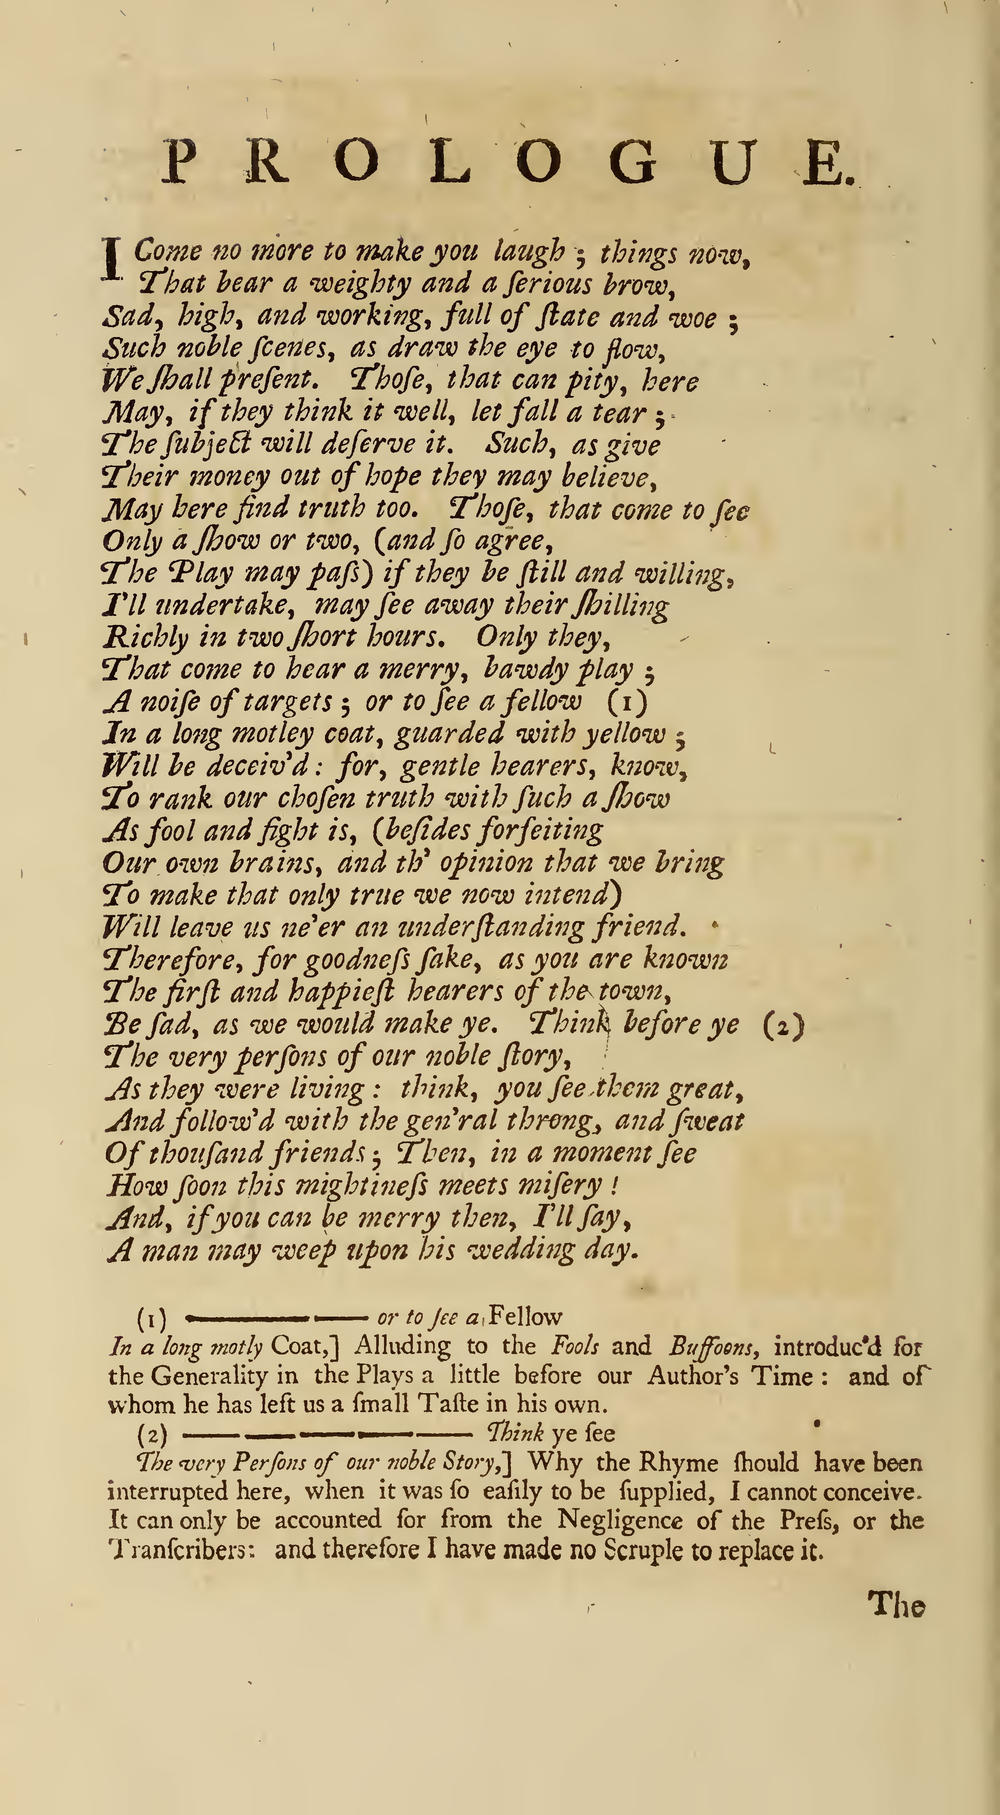 PROLOGUE.
I Come no more to make you laugh; things now,
That bear a weighty and a ſerious brow,
Sad, high, and working, full of ſtate and woe;
Such noble ſcenes, as draw the eye to flow,
We ſhall preſent. Thoſe, that can pity, here
May, if they think it well, let fall a tear;
The ſubject will deſerve it. Such, as give
Their money out of hope they may believe,
May here find truth too. Thoſe, that come to ſee
Only a ſhow or two, (and ſo agree,
The Play may paſs) if they be ſtill and willing,
I'll undertake, may ſee away their ſhilling
Richly in two ſhort hours. Only they,
That come to hear a merry, bawdy play;
A noiſe of targets; or to ſee a fellow (1)
In a long motley coat, guarded with yellow;
Will be deceiv'd: for, gentle hearers, know,
To rank our choſen truth with ſuch a ſhow
As fool and fight is, (beſides forfeiting
Our own brains, and th' opinion that we bring
To make that only true we now intend)
Will leave us ne'er an underſtanding friend.
Therefore, for goodneſs ſake, as you are known
The firſt and happieſt hearers of the town,
Be ſad, as we would make ye. Think before ye (2)
The very perſons of our noble ſtory,
As they were living: think, you ſee them great,
And follow'd with the gen'ral throng, and ſweat
Of thouſand friends; Then, in a moment ſee
How ſoon this mightineſs meets miſery!
And, if you can be merry then, I'll ſay,
A man may weep upon his wedding day.
(1) ——— or to ſee a Fellow
In a long motly Coat,] Alluding to the Fools and Buffoons, introduc'd for
the Generality in the Plays a little before our Author's Time: and of
whom he has left us a ſmall Taſte in his own.
(2) ————— Think ye ſee
The very Perſons of our noble Story,] Why the Rhyme ſhould have been
interrupted here, when it was ſo eaſily to be ſupplied, I cannot conceive.
It can only be accounted for from the Negligence of the Preſs, or the
Tranſcribers: and therefore I have made no Scruple to replace it.
The